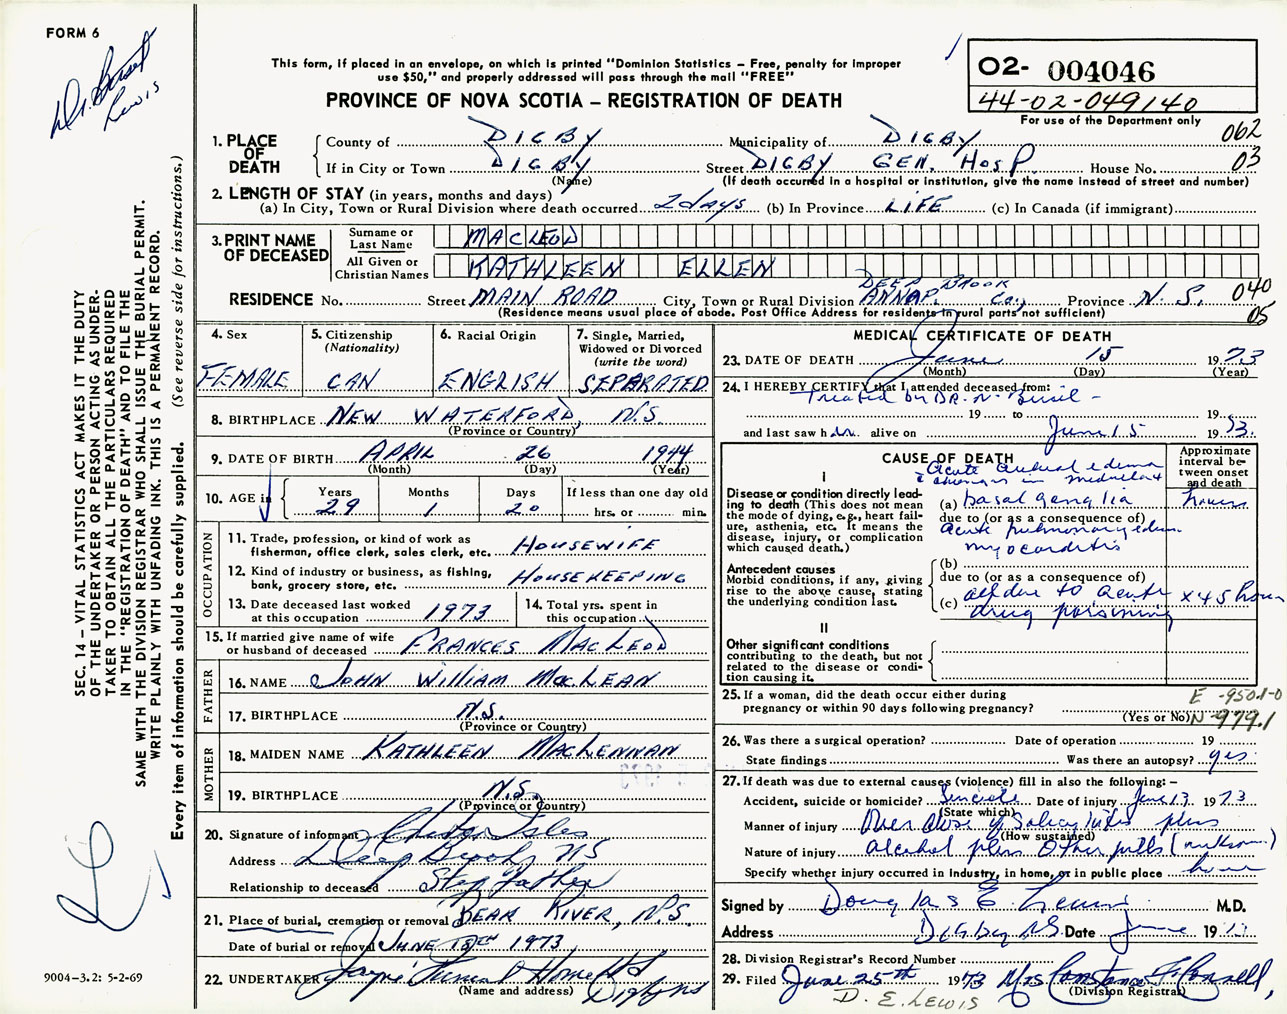 FORM 6
Dr. Birsel
Lewis
This form, if placed in an envelope, on which is printed "Dominion Statistics – Free, penalty for improper
use $50," and properly addressed will pass through the mail "FREE"
PROVINCE OF NOVA SCOTIA – REGISTRATION OF DEATH
02- 004046
44-02-049140
For use of the Department only
062
1. PLACE OF DEATH
County of DIGBY Municipality of DIGBY
03
If in City or Town DIGBY Street DIGBY GEN. HOSP. House No.
(Name) (If death occurred in a hospital or institution, give the name instead of street and number)
2. LENGTH OF STAY (in years, months and days)
(a) In City, Town or Rural Division where death occurred 2 days (b) In Province LIFE (c) In Canada (if immigrant)
3. PRINT NAME OF DECEASED
Surname or Last Name MACLEOD
All Given or Christian Names KATHLEEN ELLEN
DEEP BROOK
RESIDENCE No. Street MAIN ROAD City, Town or Rural Division ANNAP. Co., Province N.S. 040
(Residence means usual place of abode. Post Office Address for residents in rural parts not sufficient) 05
4. Sex
FEMALE
5. Citizenship
(Nationality)
CAN
6. Racial Origin
ENGLISH
7. Single, Married,
Widowed or Divorced
(write the word)
SEPARATED
8. BIRTHPLACE NEW WATERFORD, N.S.
(Province or Country)
9. DATE OF BIRTH APRIL 26 1944
(Month) (Day) (Year)
10. AGE in Years 29 Months 1 Days 20 If less than one day old
hrs. or min.
OCCUPATION
11. Trade, profession, or kind of work as
fisherman, office clerk, sales clerk, etc. HOUSEWIFE
12. Kind of industry or business, as fishing,
bank, grocery store, etc. HOUSEKEEPING
13. Date deceased last worked
at this occupation 1973
14. Total yrs. spent in
this occupation
15. If married give name of wife
or husband of deceased FRANCES MACLEOD
FATHER
16. NAME JOHN WILLIAM MACLEAN
17. BIRTHPLACE N.S.
(Province or Country)
MOTHER
18. MAIDEN NAME KATHLEEN MACLENNAN
19. BIRTHPLACE N.S.
(Province or Country)
20. Signature of informant Isles
Address Deep Brook, NS
Relationship to deceased Step father
21. Place of burial, cremation or removal BEAR RIVER, N.S.
Date of burial or removal JUNE 18th 1973
22. UNDERTAKER Jayne Funeral Home
(Name and address) Digby NS
MEDICAL CERTIFICATE OF DEATH
23. DATE OF DEATH June 15 1973
(Month) (Day) (Year)
24. I HEREBY CERTIFY that I attended deceased from:
Treated by DR. N. Birsel -
19 to 19
and last saw her alive on June 15 1973.
CAUSE OF DEATH
Approximate
interval be-
tween onset
and death
I
Disease or condition directly lead-
ing to death (This does not mean
the mode of dying, e.g., heart fail-
ure, asthenia, etc. It means the
disease, injury, or complication
which caused death.)
Acute cerebral edema
& changes in medulla &
(a) basal ganglia hours
due to (or as a consequence of)
Acute pulmonary edema
myocarditis
Antecedent causes
Morbid conditions, if any, giving
rise to the above cause, stating
the underlying condition last.
(b)
due to (or as a consequence of)
(c) all due to acute x 45 hours
drug poisoning
II
Other significant conditions
contributing to the death, but not
related to the disease or condi-
tion causing it.
25. If a woman, did the death occur either during
pregnancy or within 90 days following pregnancy?
(Yes or No)
E -950.1-0
N-979.1
26. Was there a surgical operation? Date of operation 19
State findings Was there an autopsy? yes
27. If death was due to external causes (violence) fill in also the following: –
Accident, suicide or homicide? Suicide Date of injury June 13 1973
(State which)
Manner of injury Over dose of salicylates plus
(How sustained)
Nature of injury alcohol plus other pills (unknown)
Specify whether injury occurred in industry, in home, or in public place home
Signed by Douglas E Lewis M.D.
Address Digby NS. Date June 19
28. Division Registrar's Record Number
29. Filed June 25th 1973 Mrs Constance
(Division Registrar)
D. E. LEWIS
SEC. 14 – VITAL STATISTICS ACT MAKES IT THE DUTY
OF THE UNDERTAKER OR PERSON ACTING AS UNDER-
TAKER TO OBTAIN ALL THE PARTICULARS REQUIRED
IN THE "REGISTRATION OF DEATH" AND TO FILE THE
SAME WITH THE DIVISION REGISTRAR WHO SHALL ISSUE THE BURIAL PERMIT.
WRITE PLAINLY WITH UNFADING INK. THIS IS A PERMANENT RECORD.
Every item of information should be carefully supplied. (See reverse side for instructions.)
9004–3.2: 5-2-69